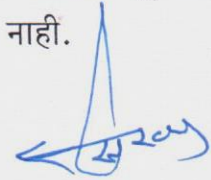 नाही.